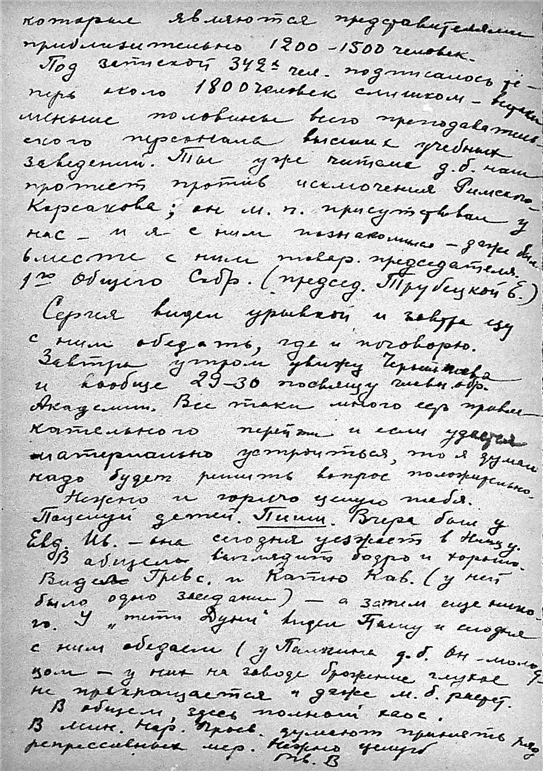 которые являются представителями
приблизительно 1200-1500 человек.
Под запиской 342х чел. подписалось те-
перь около 1800 человек слишком -
меньше половины всего преподаватель-
ского персонала высших учебных
заведений. Ты уже читала д.б. наш
протест против исключения Римского-
Корсакова; он м. п. присутствовал у
нас - и я с ним познакомился - даже был
вместе с ним товар. председателя
1го Общего Собр. (председ. Трубецкой Е.)
Сергея видел урывкой и завтра еду
с ним обедать, где и поговорю.
Завтра утром увижу Чернышева
и вообще 29-30 посвящу
Академии. Все таки много есть привле-
кательного перейти и если удастся
материально устроиться, то я думаю
надо будет решить вопрос положительно.
Нежно и горячо целую тебя.
Поцелуй детей. Пиши. Вчера был у
Евд. Ив. - она сегодня уезжает в Ниццу.
В общем выглядит бодро и хорошо.
Видел Гревс. и Катю Кав. (у ней
было одно заседание) - а затем еще нико-
го. У "тети Дуни" видел Пашу и сегодня
с ним обедаем (у Палкина д.б. Он - молод-
цом - у них на заводе брожение глухое
не прекращается и даже м.б. раст.
В общем здесь полный хаос.
В Мин. Нар. Просв. думают принять ряд
репрессивных мер. Нежно целую
Тв. В